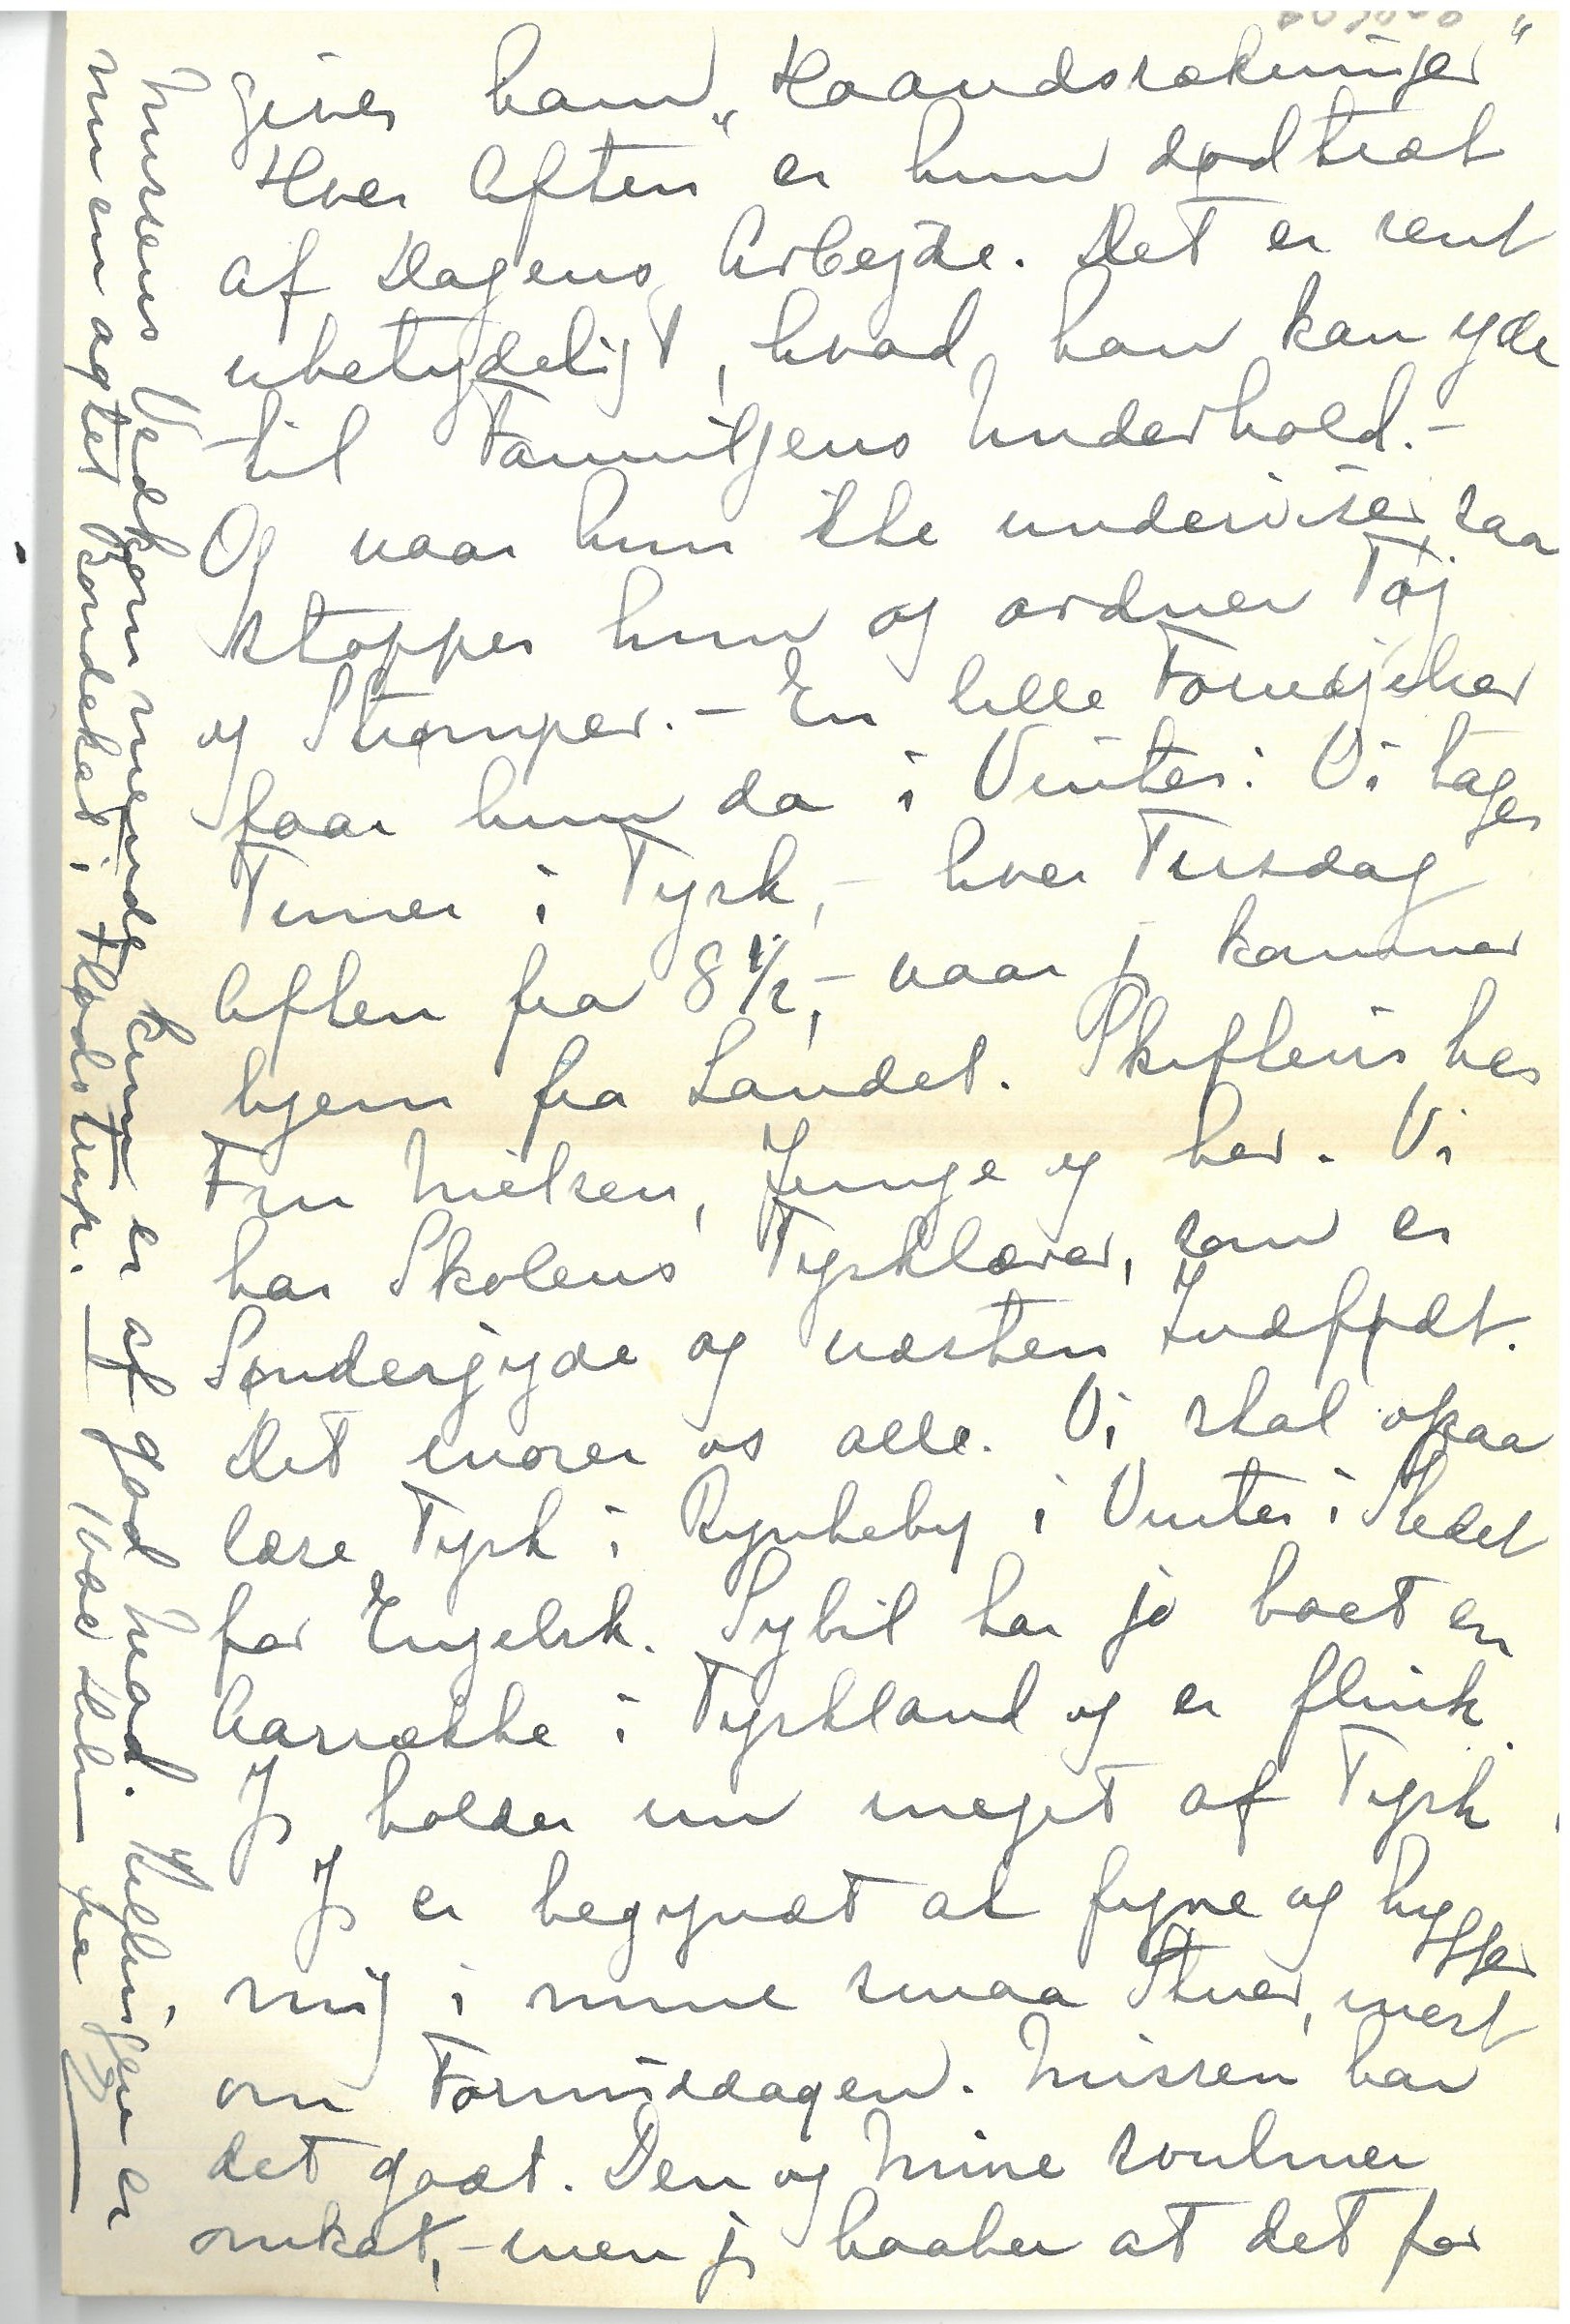 giver ham „Haandsrækninger"
Hver Aften er hun dødtræt
af Dagens Arbejde. Det er rent
ubetydeligt, hvad han kan yde
til Familjens Underhold.-
Og naar hun ikke underviser, saa
stopper hun og ordner Tøj
og Strømper. - En lille Fornøjelse
faar hun da i Vinter: Vi tager
Timer i Tysk, - hver Tirsdag
Aften fra 8 1/2, - naar j kommer
hjem fra Landet. Skiftevis hos
Fru Nielsen, Junge og her. Vi
har Skolens Tysklærer, som er
Sønderjyde og næsten
Det morer os alle. Vi skal ogsaa
læse Tysk i Rynkeby i Vinter i Stedet
for Engelsk. Sybil har jo boet en
Aarrække i Tyskland og er flink.
Jg holder nu meget af Tysk.
Jg er begyndt at fyre og hygger
mig i mine smaa Stuer, mest
om Formiddagen. Missen har
det godt. Den og Mine svulmer
omkap, - men jg haaber at det for
Missens Vedkommende kun er af god Mad. Killingen er
nu en agtet Bondekat i Flødstrup. -